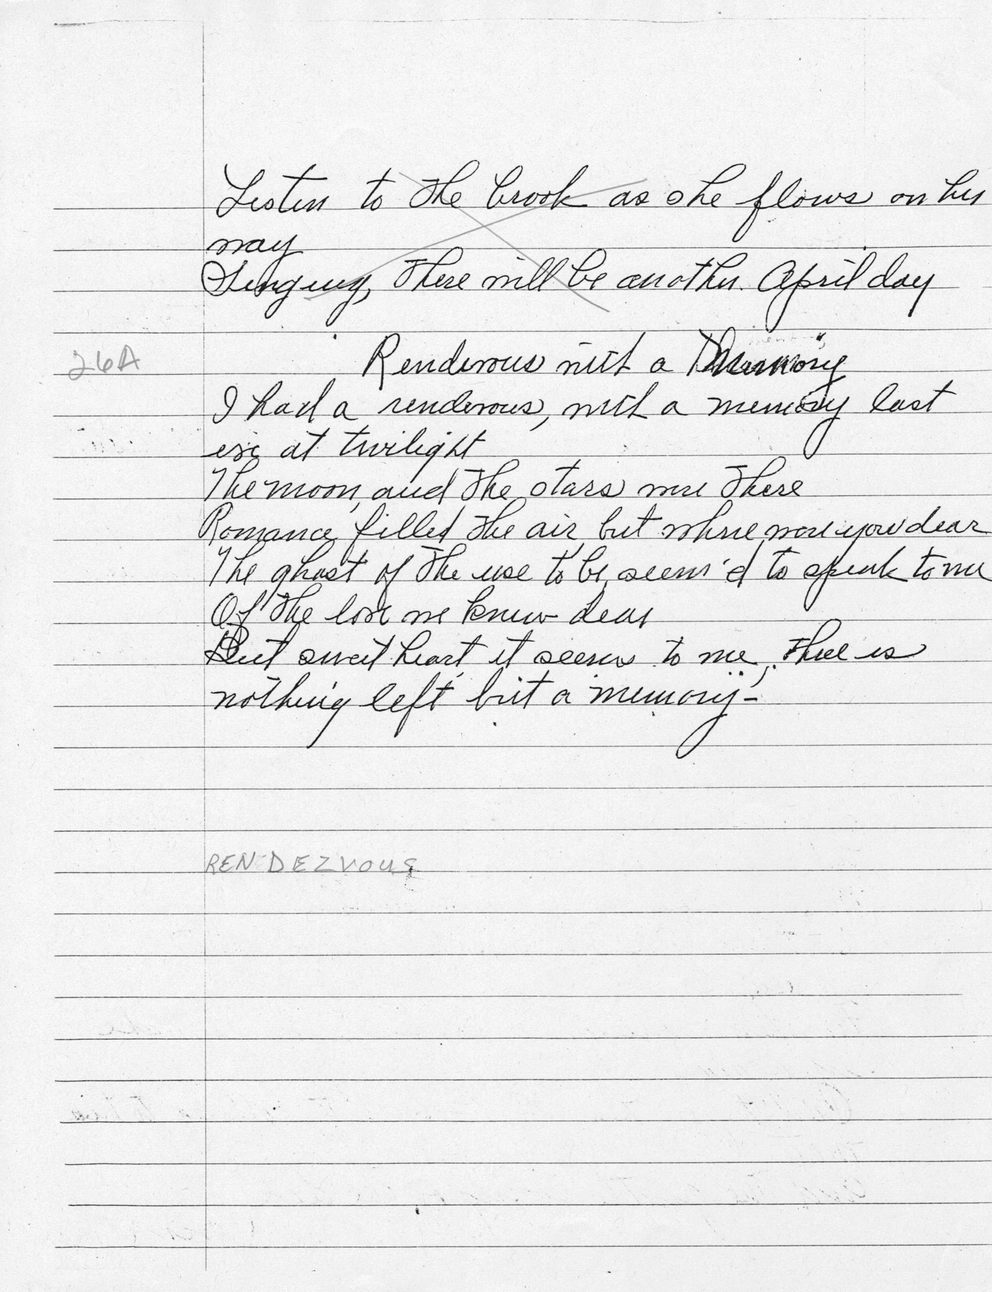 Listen to the brook as she flows on her
way
Singing, there will be another April day
26A
Rendezous with a Memory
I had a rendezous, with a memory last
eve at twilight
The moon, and the stars were there
Romance filled the air, but where were you dear
The ghost of the use to be, seem'd to speak to me
Of the love we knew dear
But sweet heart, it seems to me, there is
nothing left but a memory-
RENDEZVOUS